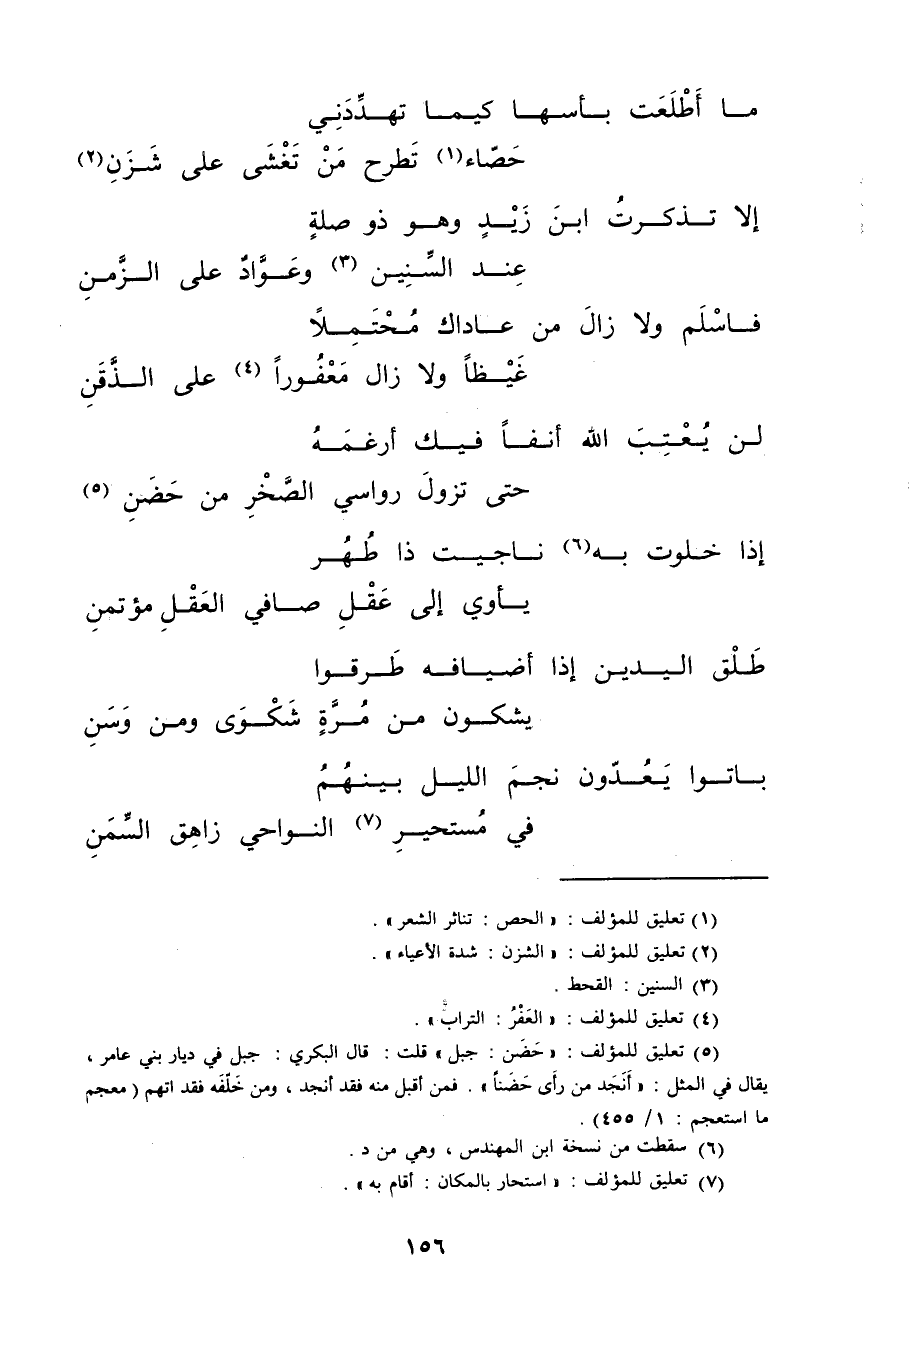 مـا أَطْلَعَت بـأسـهـا كيـمـا تهـدِّدَنِي
حَصّاء(١) تَطرح مَنْ تَغْشَى على شَـزَنِ(٢)
إلا تـذكـرتُ ابـنَ زَيْـدٍ وهـو ذو صلةٍ
عِنـد السِّـنِيـن (٣) وعَـوَّادٌ على الـزَّمـنِ
فـاسْلَم ولا زالَ من عـاداك مُـحْتَـمِـلًا
غَيْـظاً ولا زال مَعْفُـوراً (٤) على الـذَّقَنِ
لـن يُـعْـتِـبَ الله أنـفـاً فيـك أرغـمَـهُ
حتى تزولَ رواسي الصَّخْرِ من حَضَنِ (٥)
إذا خـلوت بـه(٦) نـاجيـت ذا طُـهُـر
يـأوي إلى عَقْـلِ صـافي العَقْـلِ مؤتمنِ
طَـلْق اليـدين إذا أضيـافـه طَـرقـوا
يشكـون مـن مُـرَّةٍ شَكْـوَى ومـن وَسَنِ
بـاتـوا يَـعُـدّون نجـمَ الليـل بـيـنـهُـمُ
في مُستحيـرِ (٧) النـواحي زاهِق السِّمَنِ
(١) تعليق للمؤلف : « الحص : تناثر الشعر » .
(٢) تعليق للمؤلف : « الشزن : شدة الأعياء » .
(٣) السنين : القحط .
(٤) تعليق للمؤلف : « العَفْرُ : التراب » .
(٥) تعليق للمؤلف : « حَضَن : جبل » قلت : قال البكري : جبل في ديار بني عامر ،
يقال في المثل : « أَنَجَد من رأى حَضَناً » . فمن أقبل منه فقد أنجد ، ومن خَلّفَه فقد اتهم ( معجم
ما استعجم : ١/ ٤٥٥) .
(٦) سقطت من نسخة ابن المهندس ، وهي من د .
(٧) تعليق للمؤلف : « استحار بالمكان : أقام به » .
١٥٦